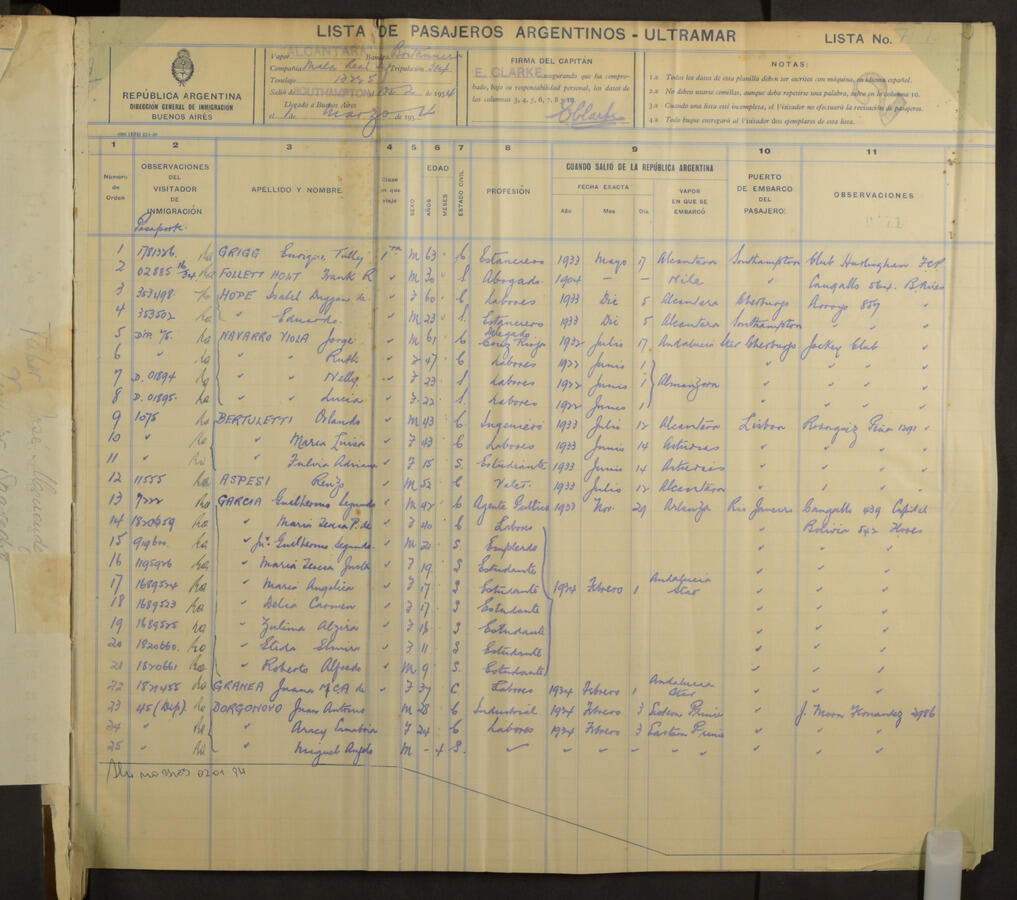 LISTA DE PASAJEROS ARGENTINOS - ULTRAMAR
LISTA No.
REPÚBLICA ARGENTINA
DIRECCION GENERAL DE INMIGRACIÓN
BUENOS AIRES
Vapor "ALCANTARA" Bandera Británica
Compañía Mala Real Tripulación
Tonelaje
Salió de SOUTHAMPTON de 1934
Llegado a Buenos Aires
el 1 de marzo de 1934
FIRMA DEL CAPITÁN
E. CLARKE asegurando que ha comprobado, bajo su responsabilidad personal, los datos de las columnas 3, 4, 5, 6, 7, 8 y 10.
E Clarke
NOTAS:
1.a Todos los datos de esta planilla deben ser escritos con máquina, en idioma español.
2.a No deben usarse comillas, aunque deba repetirse una palabra, salvo en la columna 10.
3.a Cuando una lista esté incompleta, el Visitador no efectuará la revisación de pasajeros.
4.a Todo buque entregará al Visitador dos ejemplares de esta lista.
1 2 3 4 5 6 7 8 9 10 11
Número de Orden
OBSERVACIONES DEL VISITADOR DE INMIGRACIÓN
APELLIDO Y NOMBRE
Clase en que viaja
SEXO
EDAD
AÑOS
MESES
ESTADO CIVIL
PROFESIÓN
CUANDO SALIÓ DE LA REPÚBLICA ARGENTINA
FECHA EXACTA
Año Mes Día
VAPOR EN QUE SE EMBARCÓ
PUERTO DE EMBARCO DEL PASAJERO:
OBSERVACIONES
Pasaporte
1 1781326 GRIGG Enrique Tully 1ra M 63 C Estanciero 1933 Mayo 17 Alcantara Southampton Club Hurlingham FCP
2 02885 FOLLETT HOLT Frank R " M 30 S Abogado 1904 — — Nile " Cangallo 564 B. Aires
3 353498 HOPE Isabel Duggan de " F 60 C Labores 1933 Dic 5 Alcantara Cherburgo Arroyo 857
4 353502 " Eduardo " M 23 S. Estanciero 1933 Dic 5 Alcantara Southampton " "
5 NAVARRO VIOLA Jorge " M 61 C Abogado 1922 Julio 17 Andalucia Star Cherburgo Jockey Club "
6 " " Ruth " F 47 C Labores 1922 Junio 1 " " "
7 D. 01894 " " Nelly " F 23 S. Labores 1922 Junio 1 Almanzora " " "
8 D. 01895 " " Lucia " F 22 S. Labores 1922 Junio 1 " " "
9 1075 BERTULETTI Orlando " M 43 C Ingeniero 1933 Julio 12 Alcantara Lisbon Rodriguez Peña 1291 "
10 " " Maria Luisa " F 43 C Labores 1933 Junio 14 Asturias " " "
11 " " Fulvia Adriana " F 15 S. Estudiante 1933 Junio 14 Asturias " " "
12 11555 ASPESI Renzo " M 52 C Valet 1933 Julio 12 Alcantara " " "
13 7222 GARCIA Guilhermo Segundo " M 42 C 1933 Nov. 29 Arlanza Rio Janeiro Cangallo 439 Capital
14 1820659 " Maria Teresa P. de " F 40 C Labores " Bolivia 542 Flores
15 " Jn. Guilhermo Segundo " M 21 S. Empleado " "
16 1195926 " Maria Teresa " F 19 S Estudiante " "
17 1689524 " Maria Angelica " F 17 S Estudiante 1934 Febrero 1 Andalucia Star " "
18 1689523 " Delia Carmen " F 17 S Estudiante " "
19 1689525 " Zulima Alzira " F S Estudiante " "
20 1820660 " Elmira " F 11 S Estudiante " "
21 1820661 " Roberto Alfredo " M 9 S. Estudiante " "
22 1821455 Juana M.C.A de " F 37 C Labores 1934 Febrero 1 Andalucia Star " "
23 45 (Dip) DORGONOVO Juan Antonio " M 28 C Industrial 1934 Febrero 3 Eastern Prince " J. Moon Fernandez 2986
24 " " Aracy " F 24 C Labores 1934 Febrero 3 Eastern Prince " "
25 " " Miguel Angelo " M - 4 S. " " " " " " "